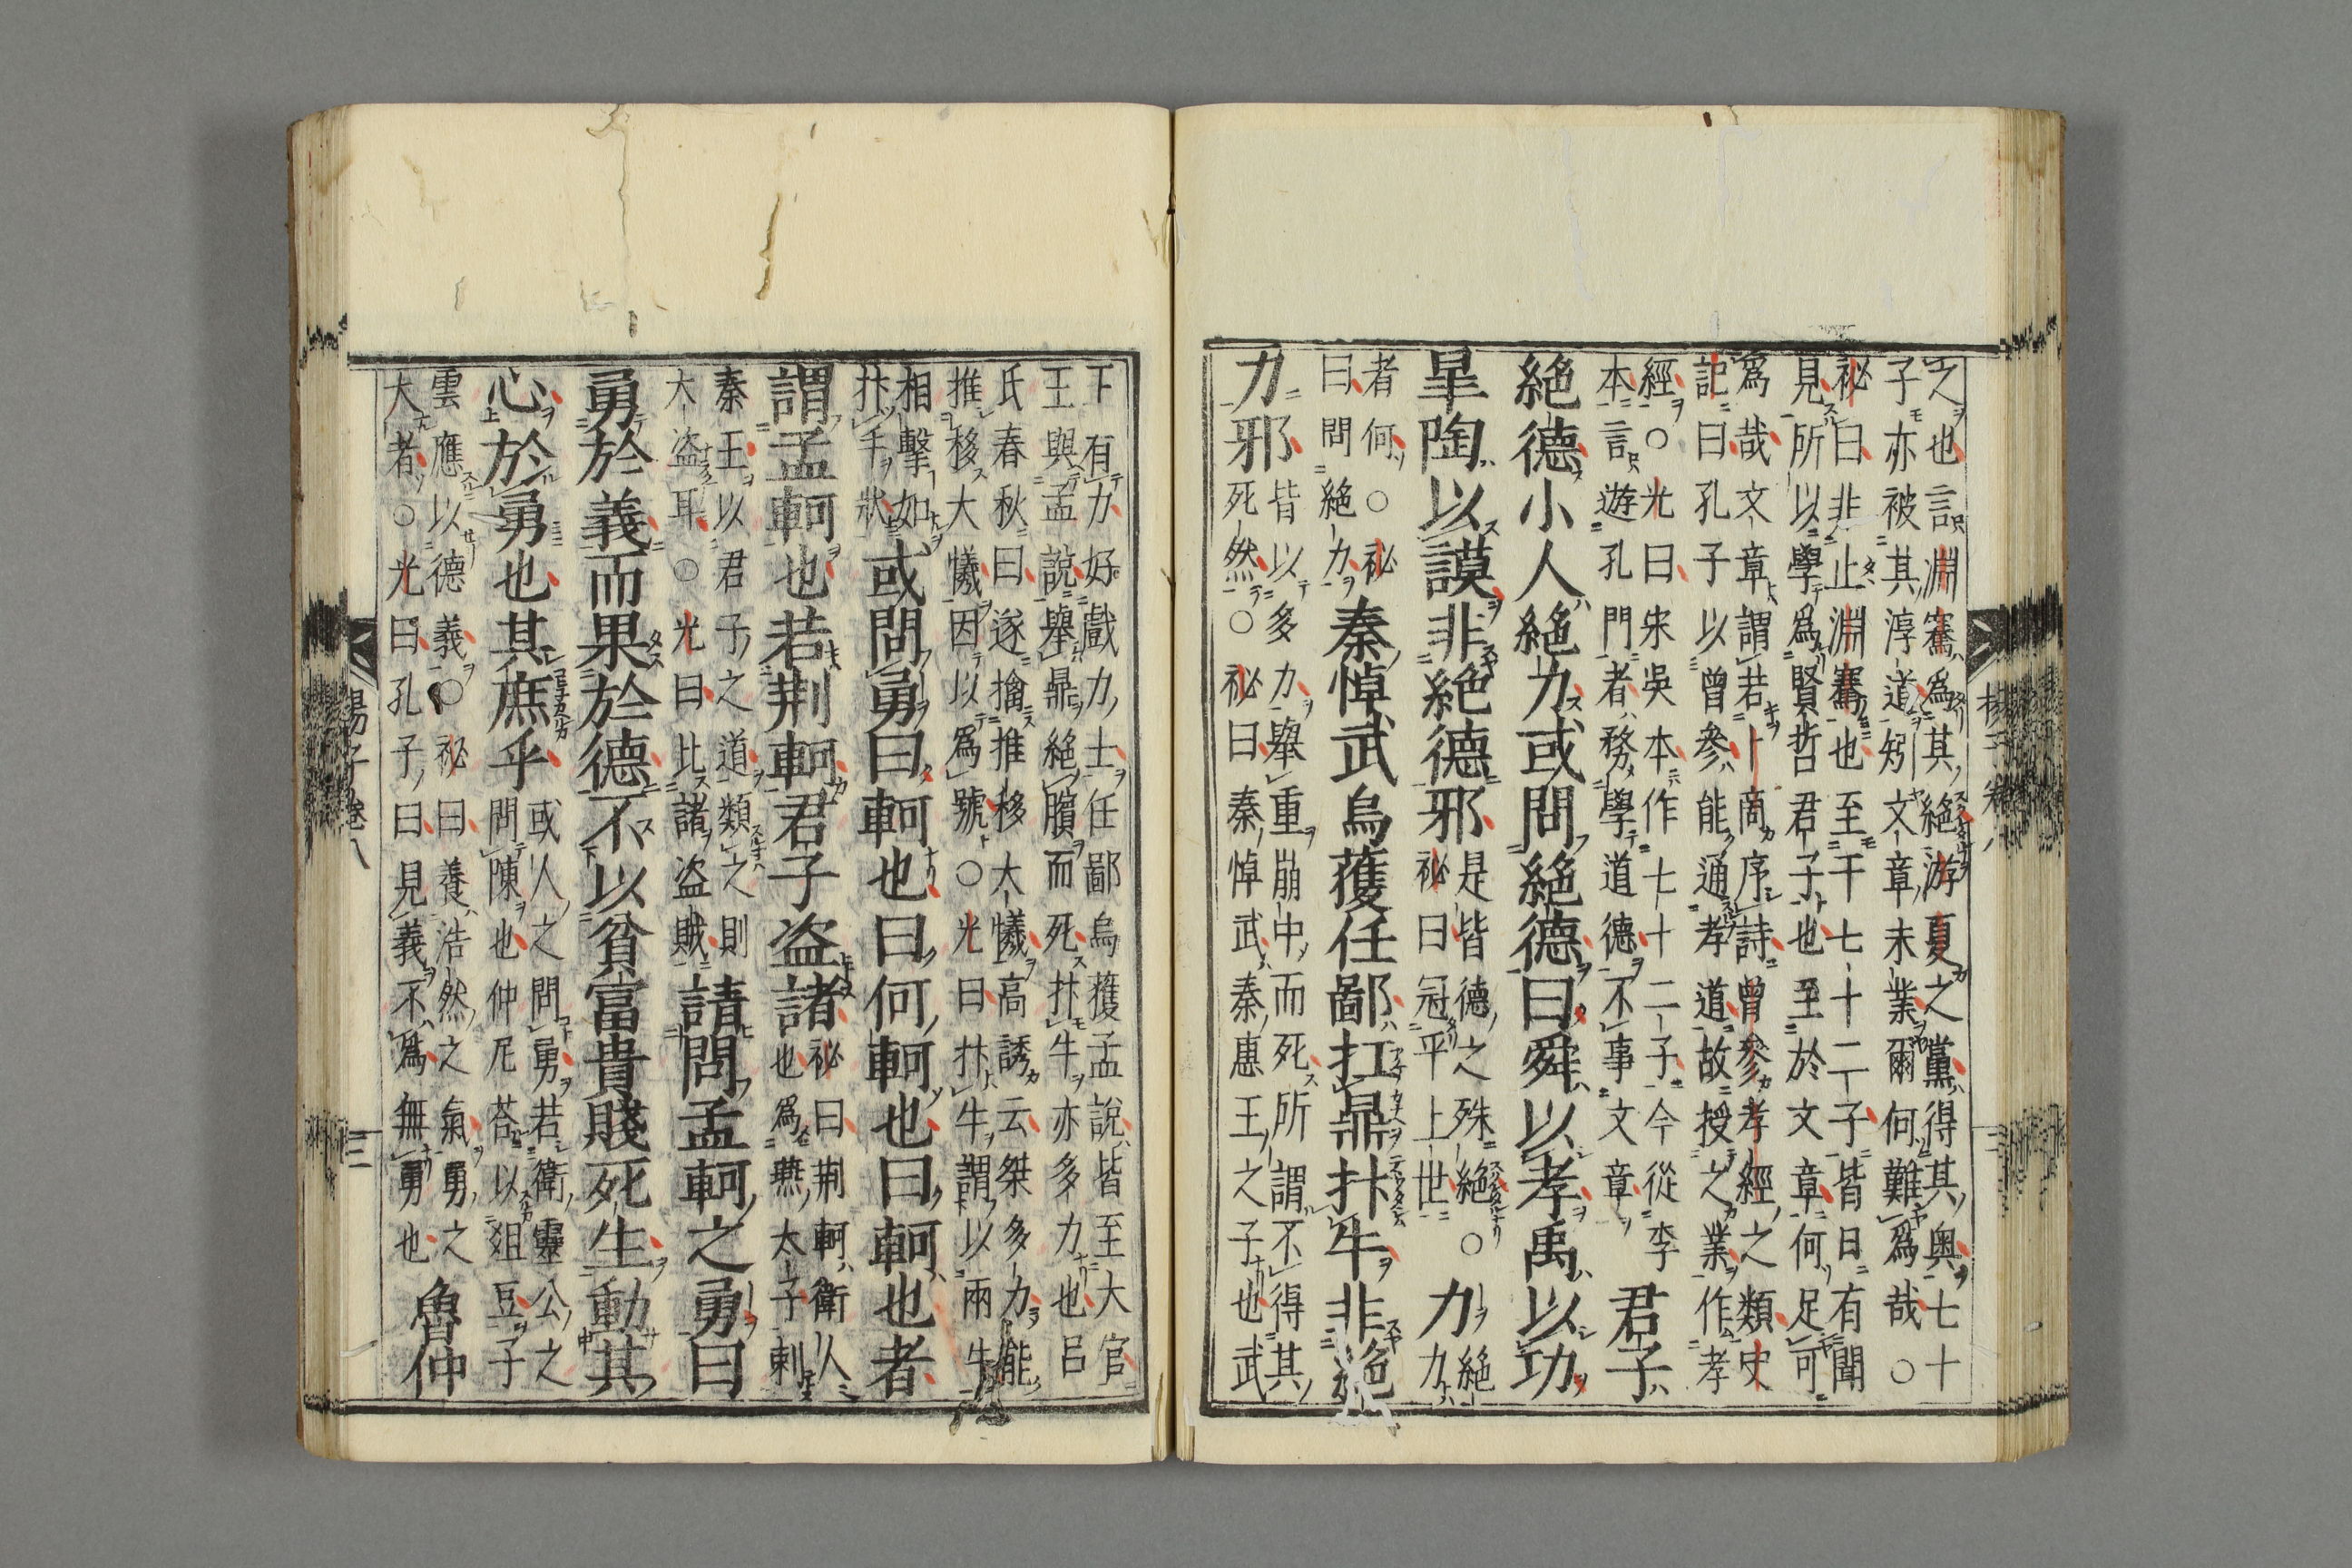 之也言淵騫爲其絕游夏之黨得其奥七十
子亦被其淳道矧文章未業爾何難爲哉○
祕曰非止淵騫也至于七十二子皆日有聞
見所以學爲賢哲君子也至於文章何足可
爲哉文章謂若卜商序詩曾參孝經之類史
記曰孔子以曾參能通孝道故授之業作孝
經○光曰宋吳本作七十二子今從李
本言遊孔門者務學道德不事文章
君子
絕德小人絕力或問絕德曰舜以孝禹以功
皐陶以謨非絕德邪
是皆德之殊絕○
祕曰冠平上世
力絕
力
者何○祕
曰問絕力
秦悼武烏獲任鄙扛鼎抃牛非絕
力邪
皆以多力舉重崩中而死所謂不得其
死然○祕曰秦悼武秦惠王之子也武
下有力好戲力士任鄙烏獲孟說皆至大官
王與孟說舉鼎絕臏而死抃牛亦多力也呂
氏春秋曰遂擒推移大犧高誘云桀多力能
推移大犧因以爲號○光曰抃牛謂以兩牛
相擊如
抃手狀
或問勇曰軻也曰何軻也曰軻也者
謂孟軻也若荆軻君子盗諸
祕曰荆軻衛人
也爲燕太子刺
秦王以君子之道類之則
大盗耳○光曰比諸盗賊
請問孟軻之勇曰
勇於義而果於德不以貧富貴賤死生動其
心於勇也其庶乎
或人之問勇若衛靈公之
問陳也仲尼荅以爼豆子
雲應以德義○祕曰養浩然之氣勇之
大者○光曰孔子曰見義不爲無勇也
魯仲
揚子卷八
三